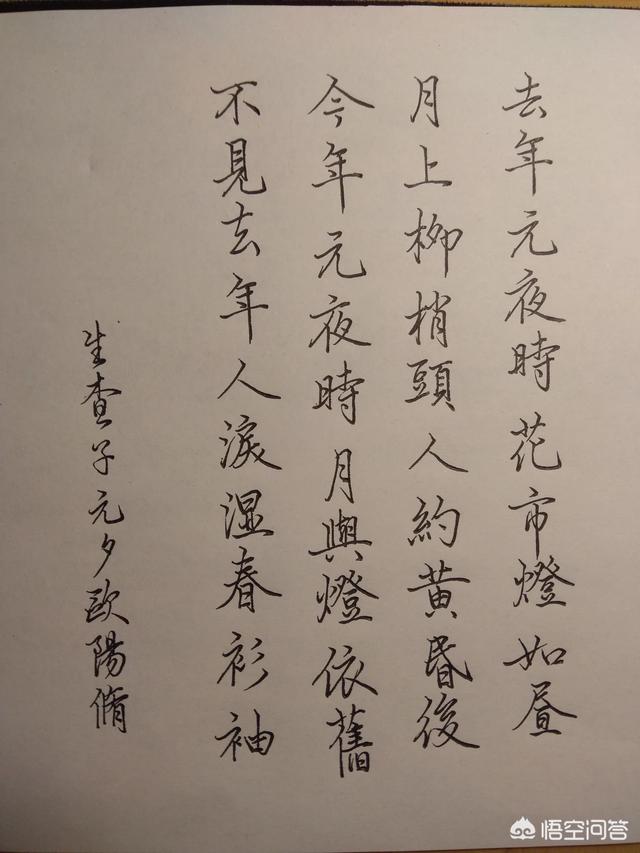 去年元夜時花市燈如昼
月上柳梢頭人約黄昏後
今年元夜時月與燈依舊
不見去年人淚湿春衫袖
生查子元夕欧陽脩
悟空问答